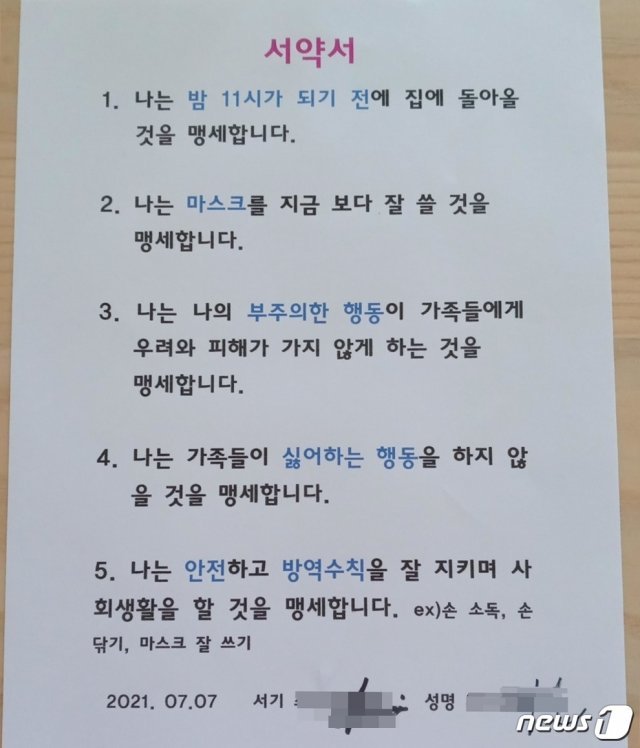 서약서
1. 나는 밤 11시가 되기 전에 집에 돌아올
것을 맹세합니다.
2. 나는 마스크를 지금 보다 잘 쓸 것을
맹세합니다.
3. 나는 나의 부주의한 행동이 가족들에게
우려와 피해가 가지 않게 하는 것을
맹세합니다.
4. 나는 가족들이 싫어하는 행동을 하지 않
을 것을 맹세합니다.
5. 나는 안전하고 방역수칙을 잘 지키며 사
회생활을 할 것을 맹세합니다. ex)손 소독, 손
닦기, 마스크 잘 쓰기
2021. 07.07 서기 : 성명
news1